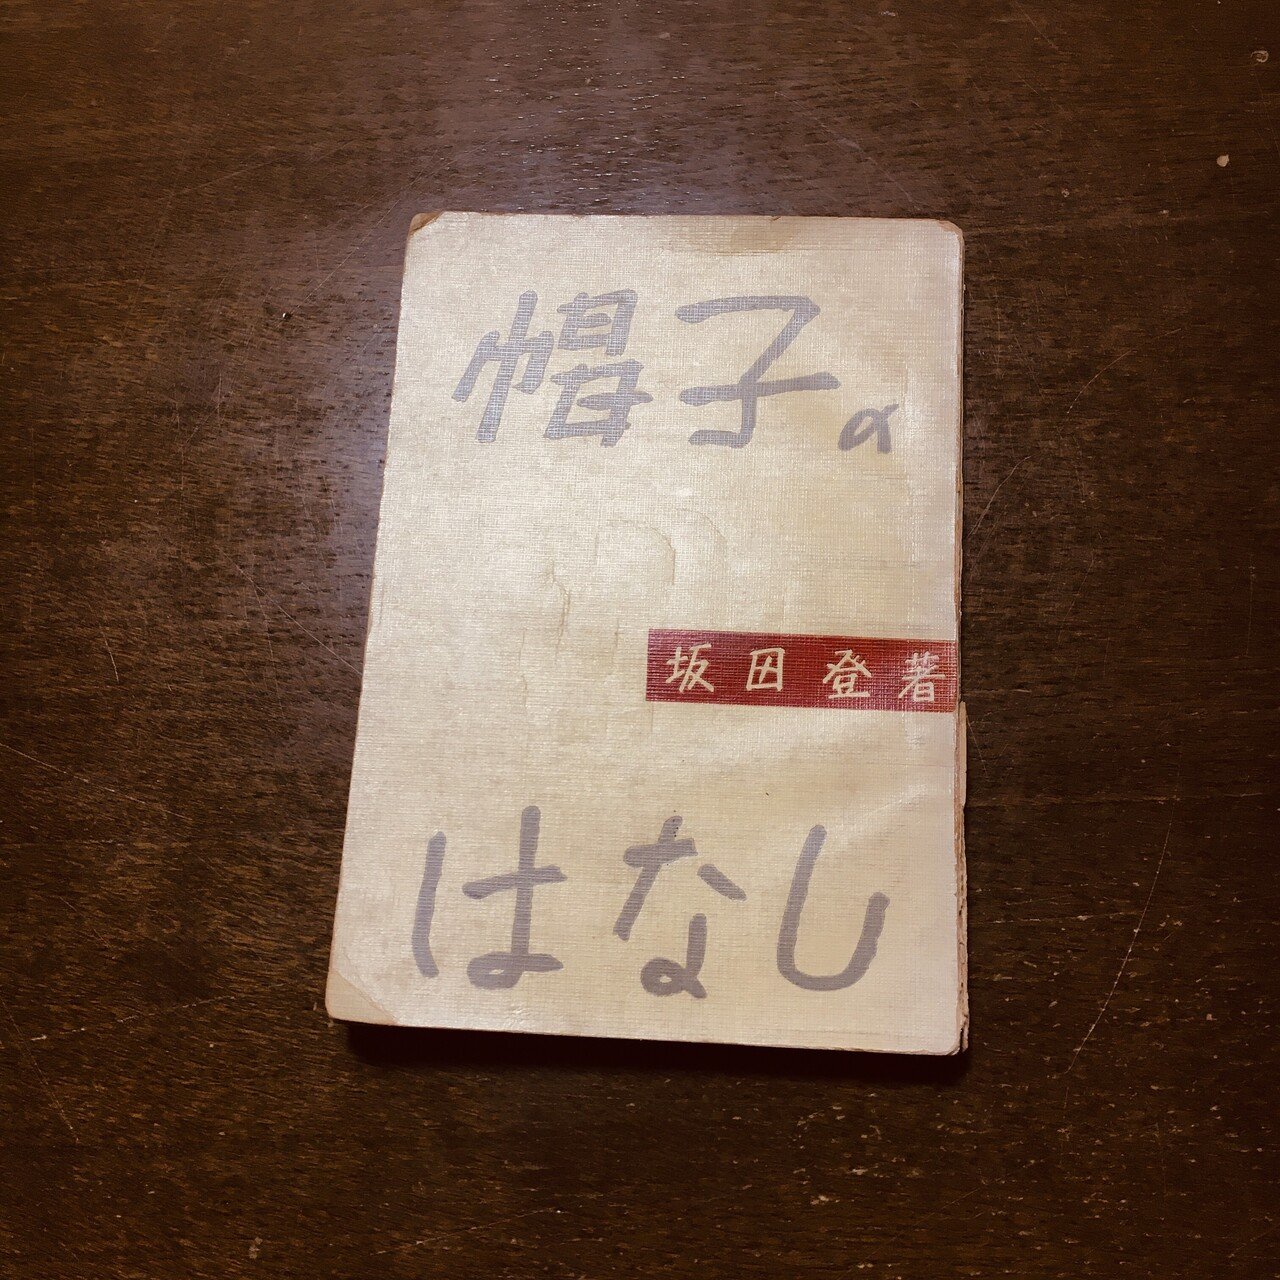 帽子の
坂田登著
はなし